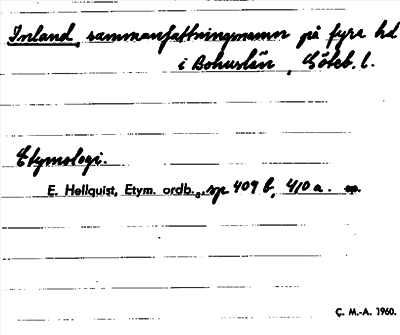 Inland, sammanfattningsnamn på fyra hd
i Bohuslän, Göteb. l.
Etymologi.
E. Hellquist, Etym. ordb., sp 409 b, 410 a.
Ç. M.-A. 1960.